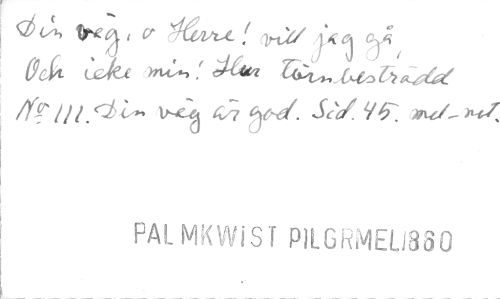 Din väg, o Herre! vill jag gå,
Och icke min! Hur törnbesträdd
No 111. Din väg är god. Sid. 45. med not.
PALMKWiST PILGRMEL1860